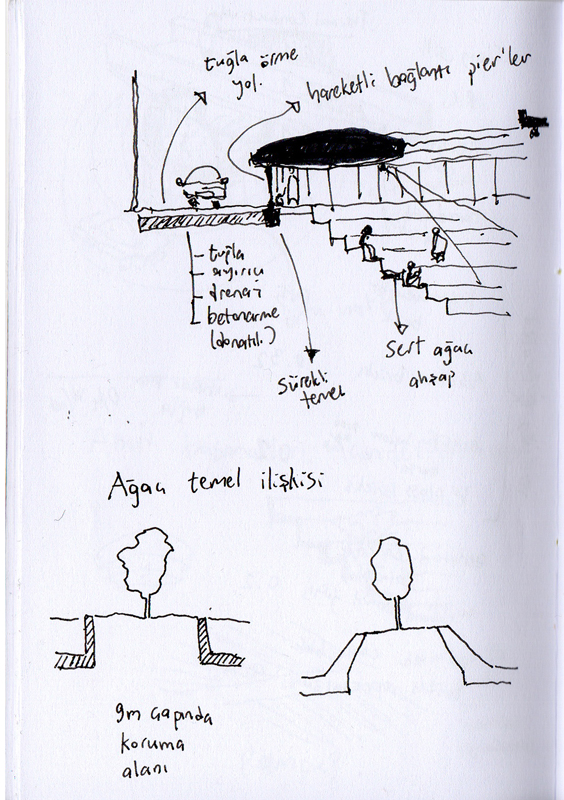 tuğla örme
yol.
hareketli bağlantı pier'ler
tuğla
ayırıcı
drenaj
betonarme
(donatılı)
sürekli
temel
sert ağacı
ahşap
Ağacı temel ilişkisi
9m çapında
koruma
alanı